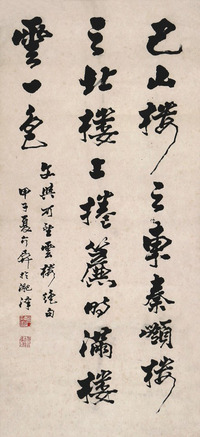 巴山樓之東秦嶺樓
之北樓上捲簾時滿樓
雲一色
文與可望雲樓絕句
甲子夏於